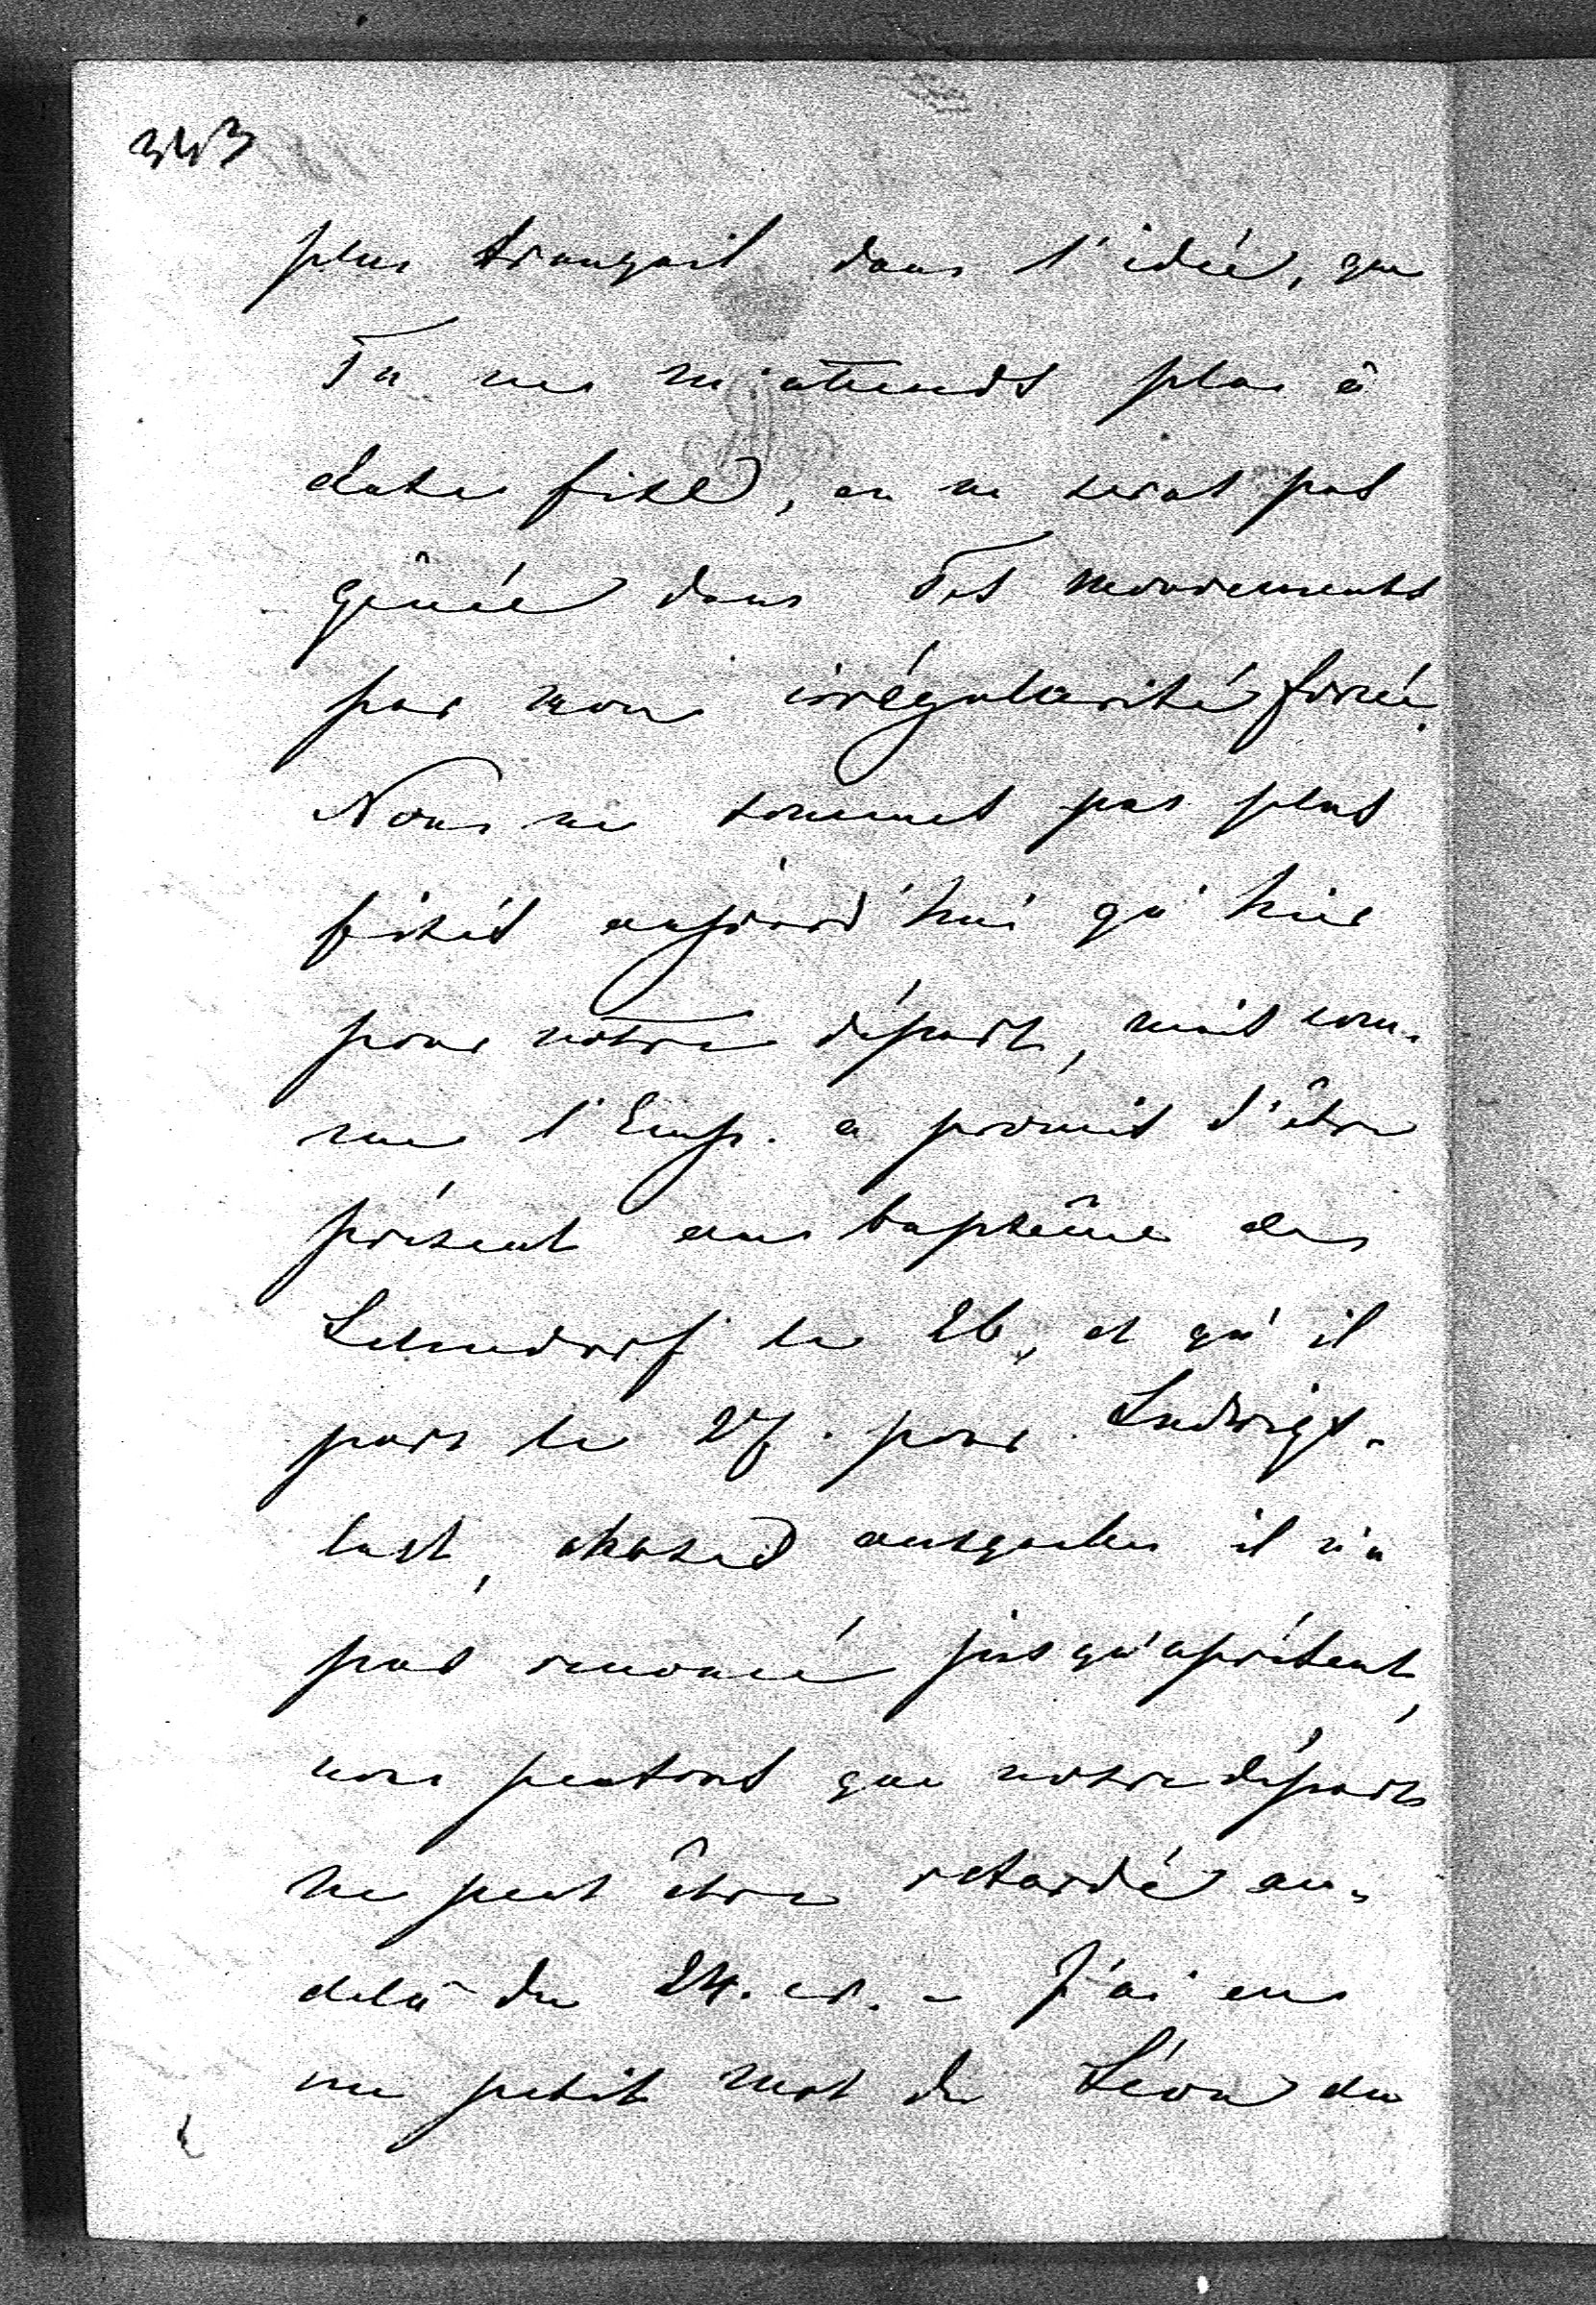 343
plus tranquil dans l'idée, que
Tu ne m'attends plus à
date fixe, on ne serat pas
gênée dans Tes mouvements
par mon irrégularité forcé.
Nous ne sommes pas plus
fixés aujourd'hui qu'hier
pour notre départ, mais com-
me l'Emp. a promis d'être
présent au baptême des
Lehndorf le 26, et qu'il
part le 27. pour Ludwigs-
lust, auxquelles il n'a
pas renoncé jusqu'aprésent,
nous pensons que notre départ
ne peut être retardé au-
delà du 24. cr. - J'ai eu
un petit mot de Léon du